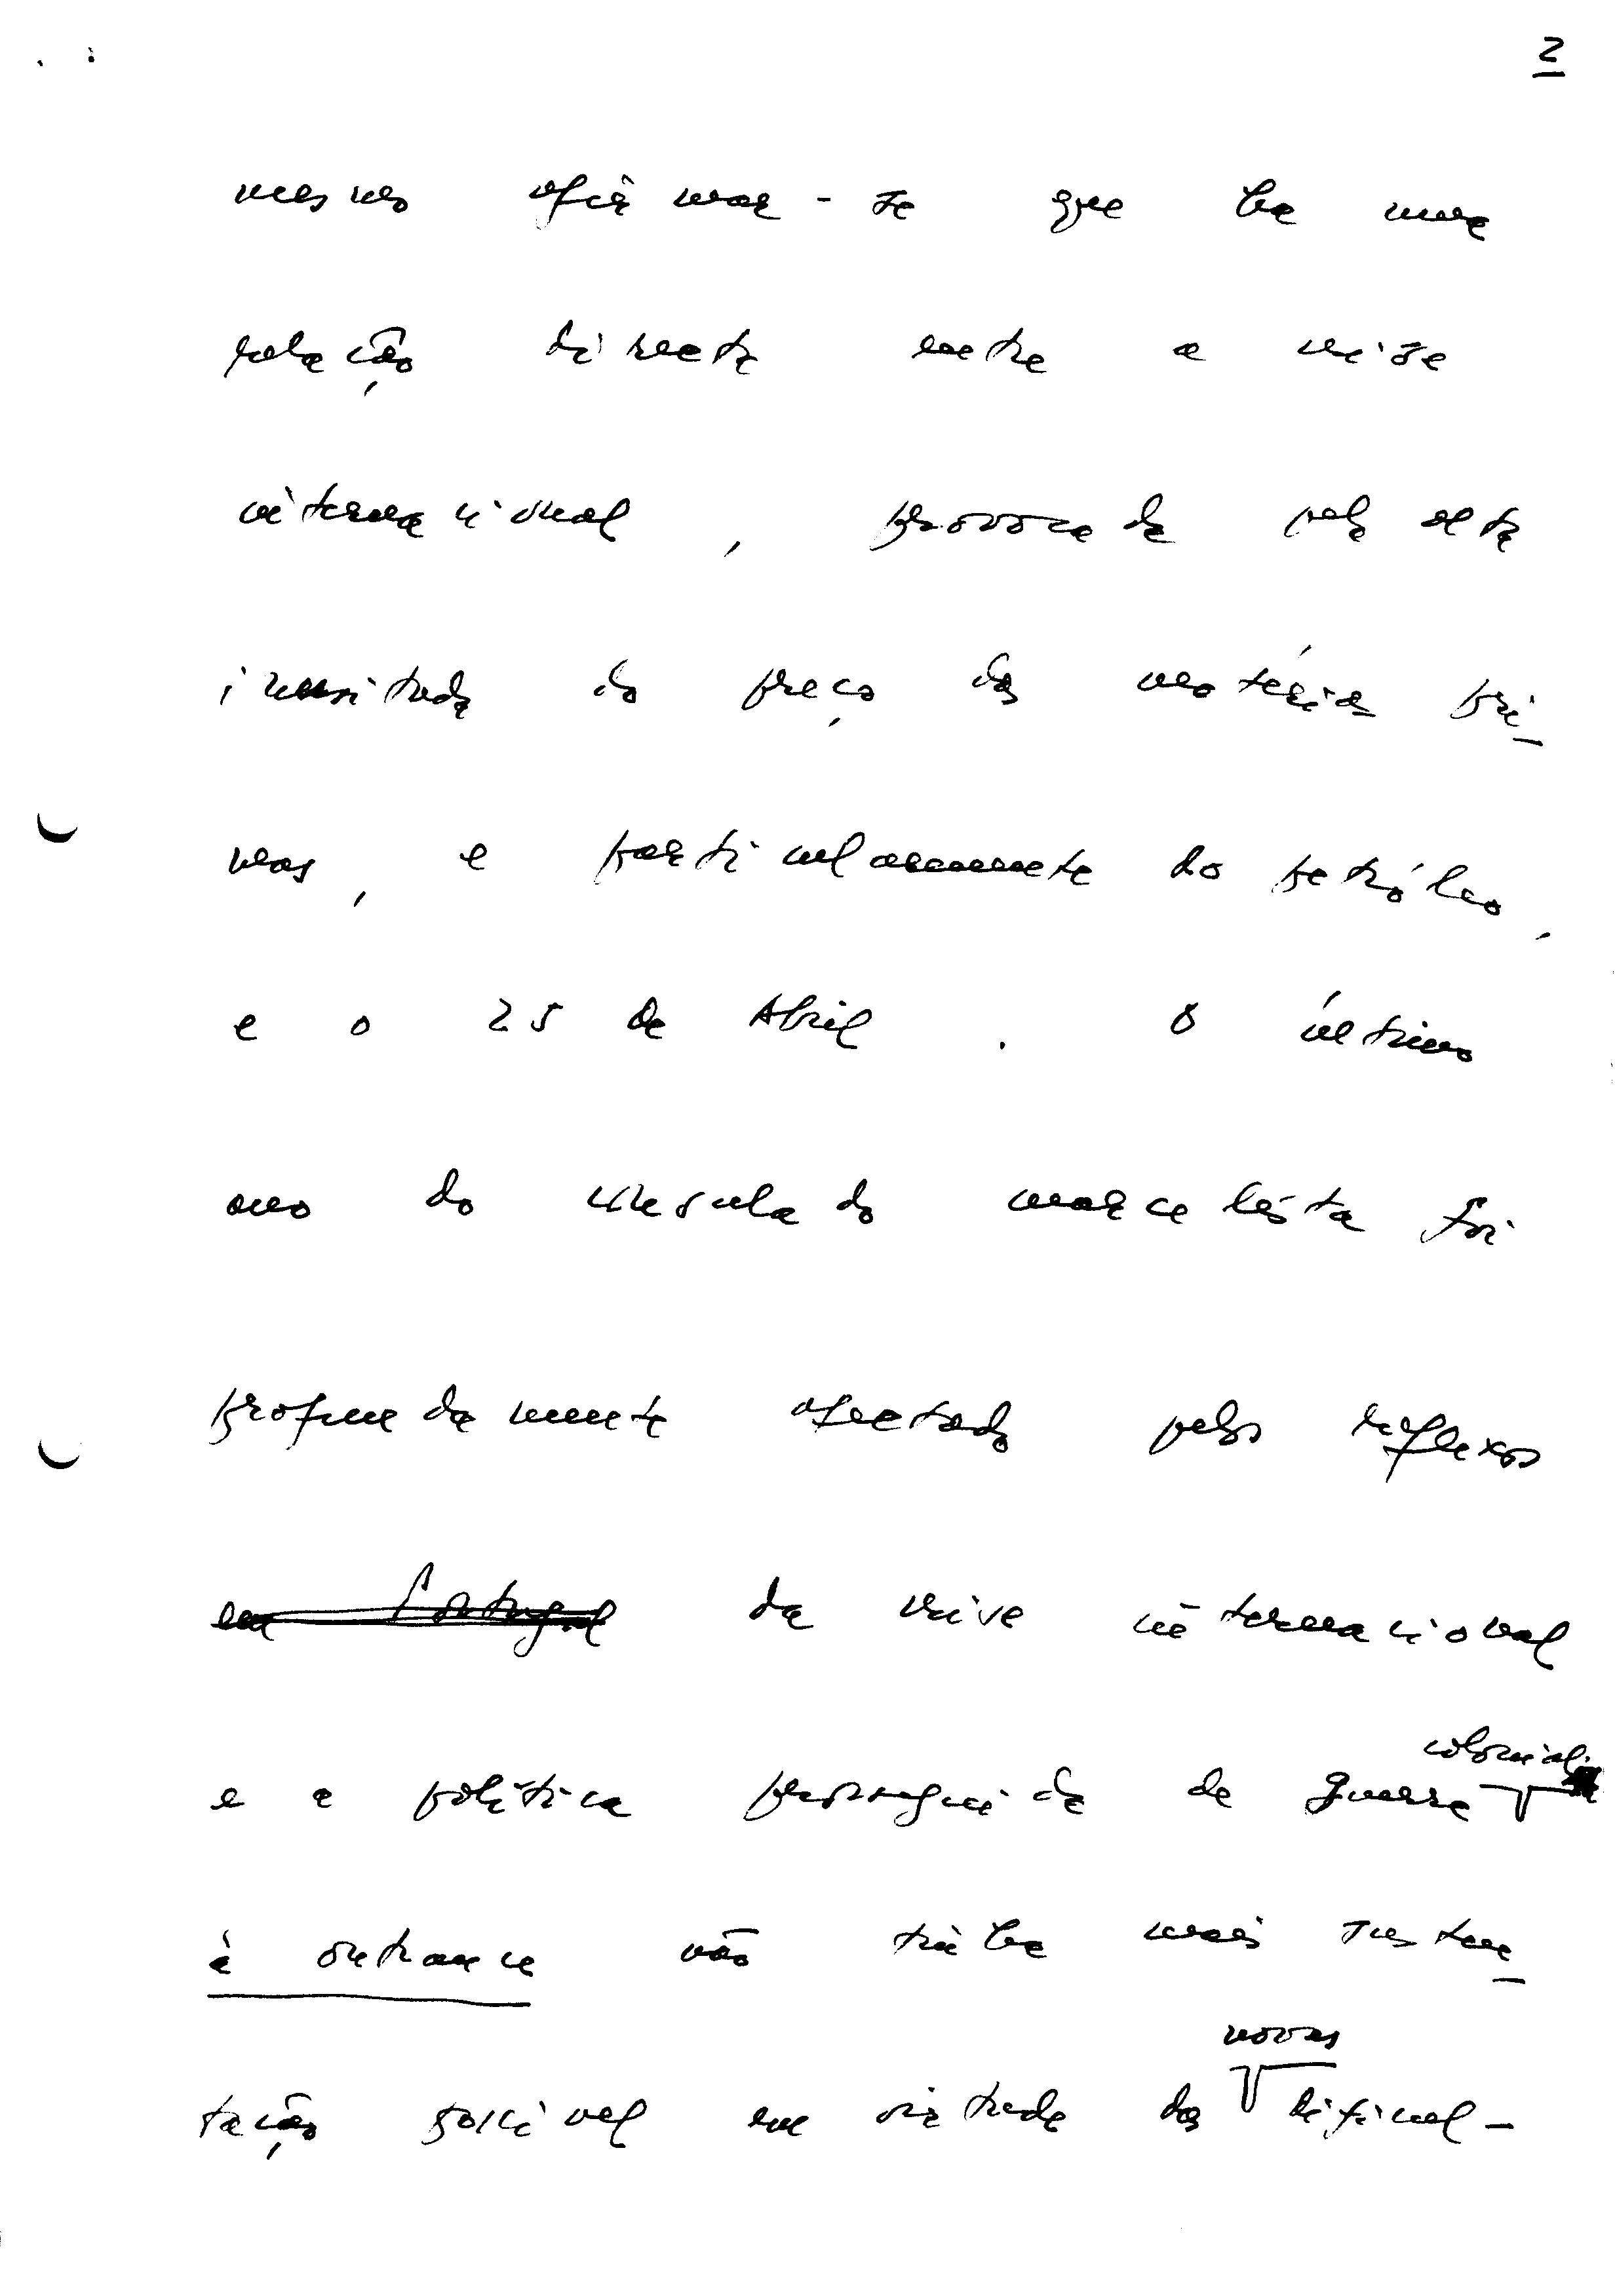 2
mesmo afirmar-se que há uma
relação directa entre a crise
internacional, provocada pela alta
inusitada do preço das matérias pri-
mas, e particularmente do petróleo,
e o 25 de Abril. O último
ano do consulado marcelista foi
profundamente afectado pelos reflexos
em Portugal da crise internacional
colonial
e a política prosseguida de guerra
à outrance não tinha mais susten-
novas
tação possível em virtude das dificul-